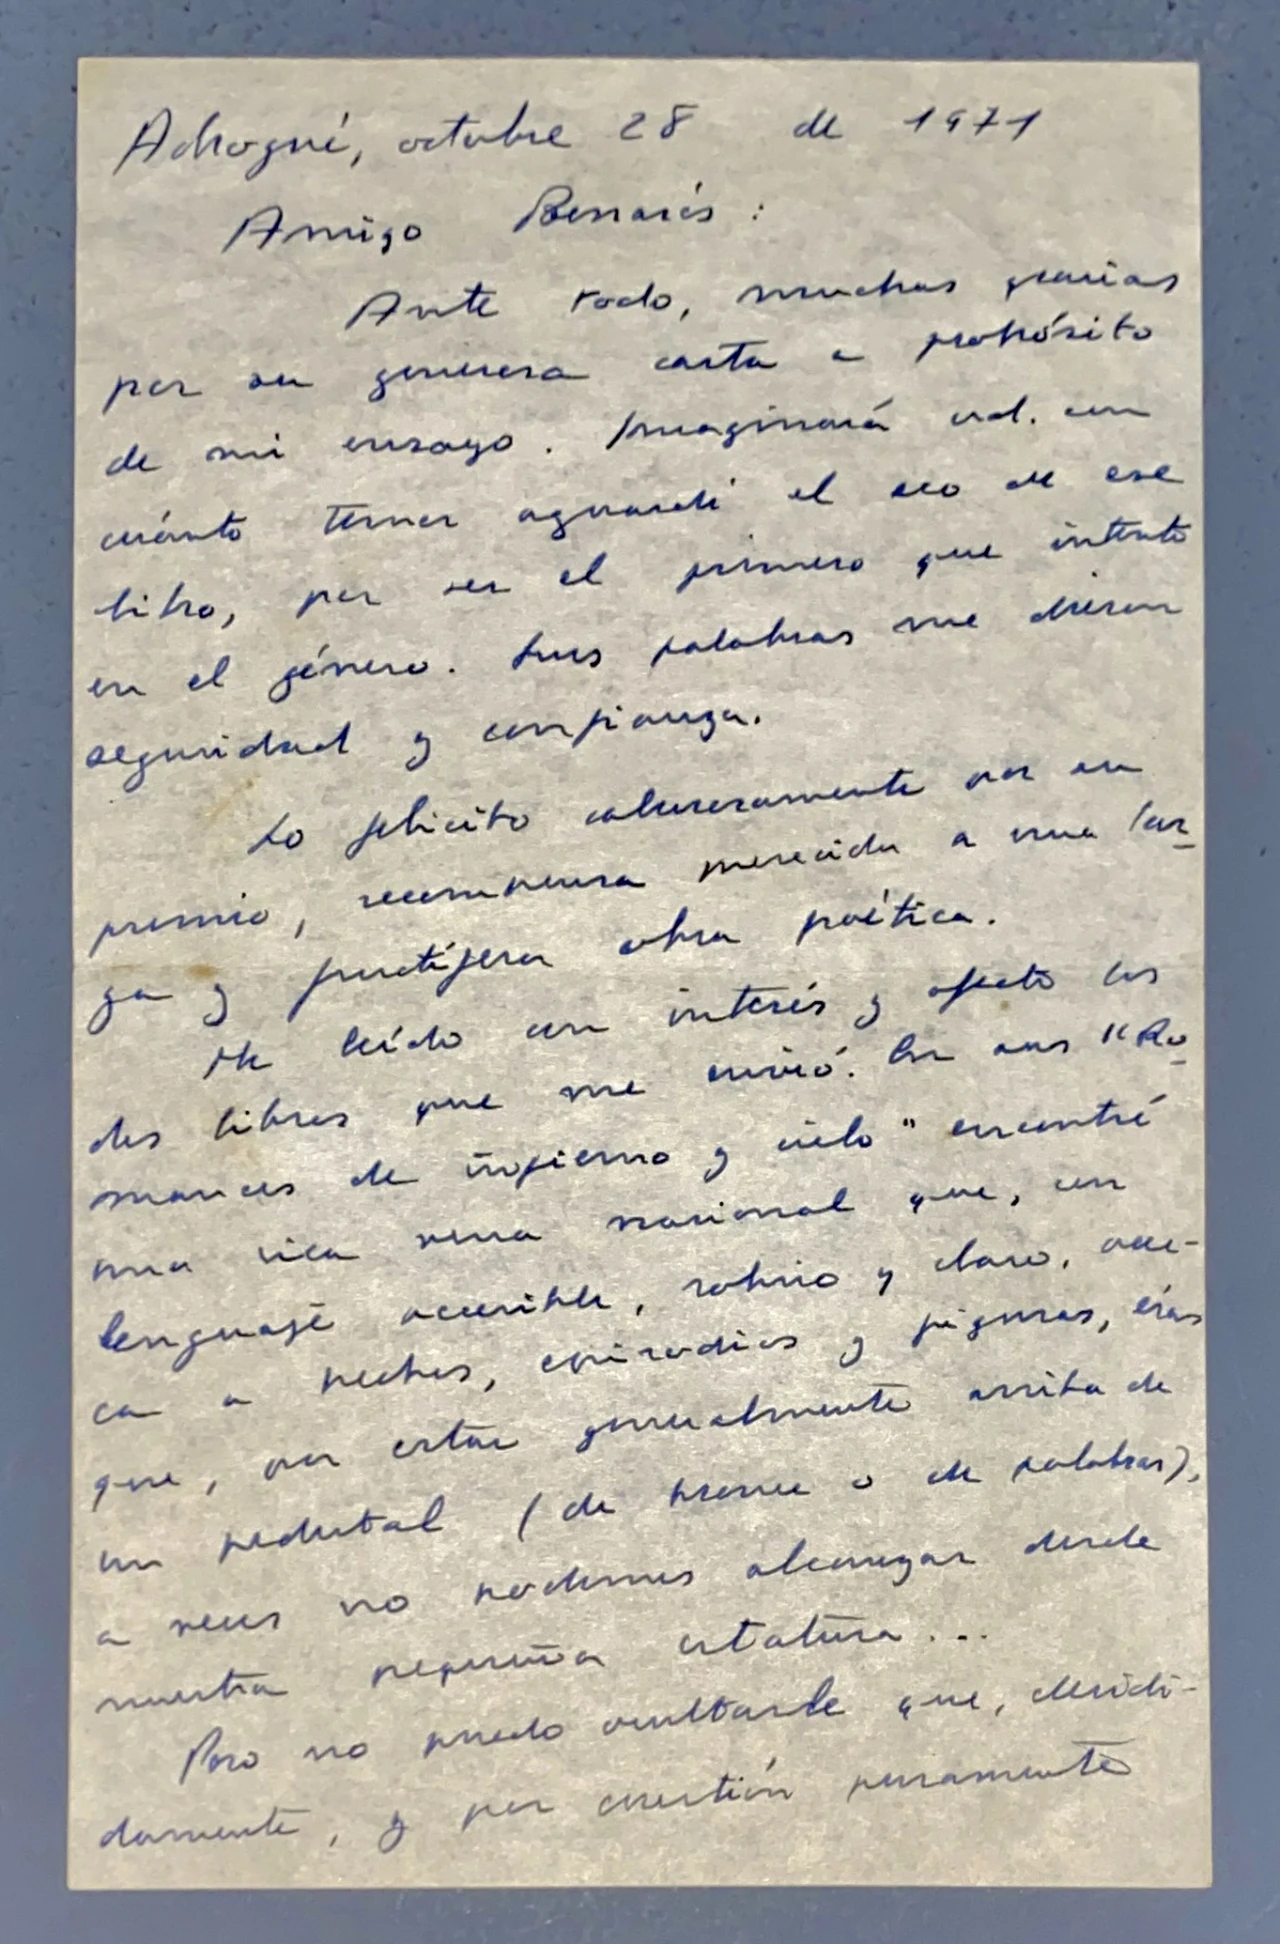 Adrogué, octubre 28 de 1971
Amigo Benarós:
Ante todo, muchas gracias
por su generosa carta a propósito
de mi ensayo. Imaginará ud. con
cuánto temor aguardé el eco de ese
libro, por ser el primero que intento
en el género. Sus palabras me dieron
seguridad y confianza.
Lo felicito calurosamente por su
premio, recompensa merecida a una lar
ga y fructífera obra poética.
He leído con interés y afecto los
dos libros que me envió. En sus "Ro
mances de infierno y cielo" encontré
una rica vena nacional que, con
lenguaje accesible, sobrio y claro, acer-
ca a hechos, episodios y figuras, esas
que, por estar generalmente arriba de
un pedestal (de bronce o de palabras),
a veces no podemos alcanzar desde
nuestra pequeña estatura...
Pero no puedo ocultarle que, decidi-
damente, y por cuestión puramente